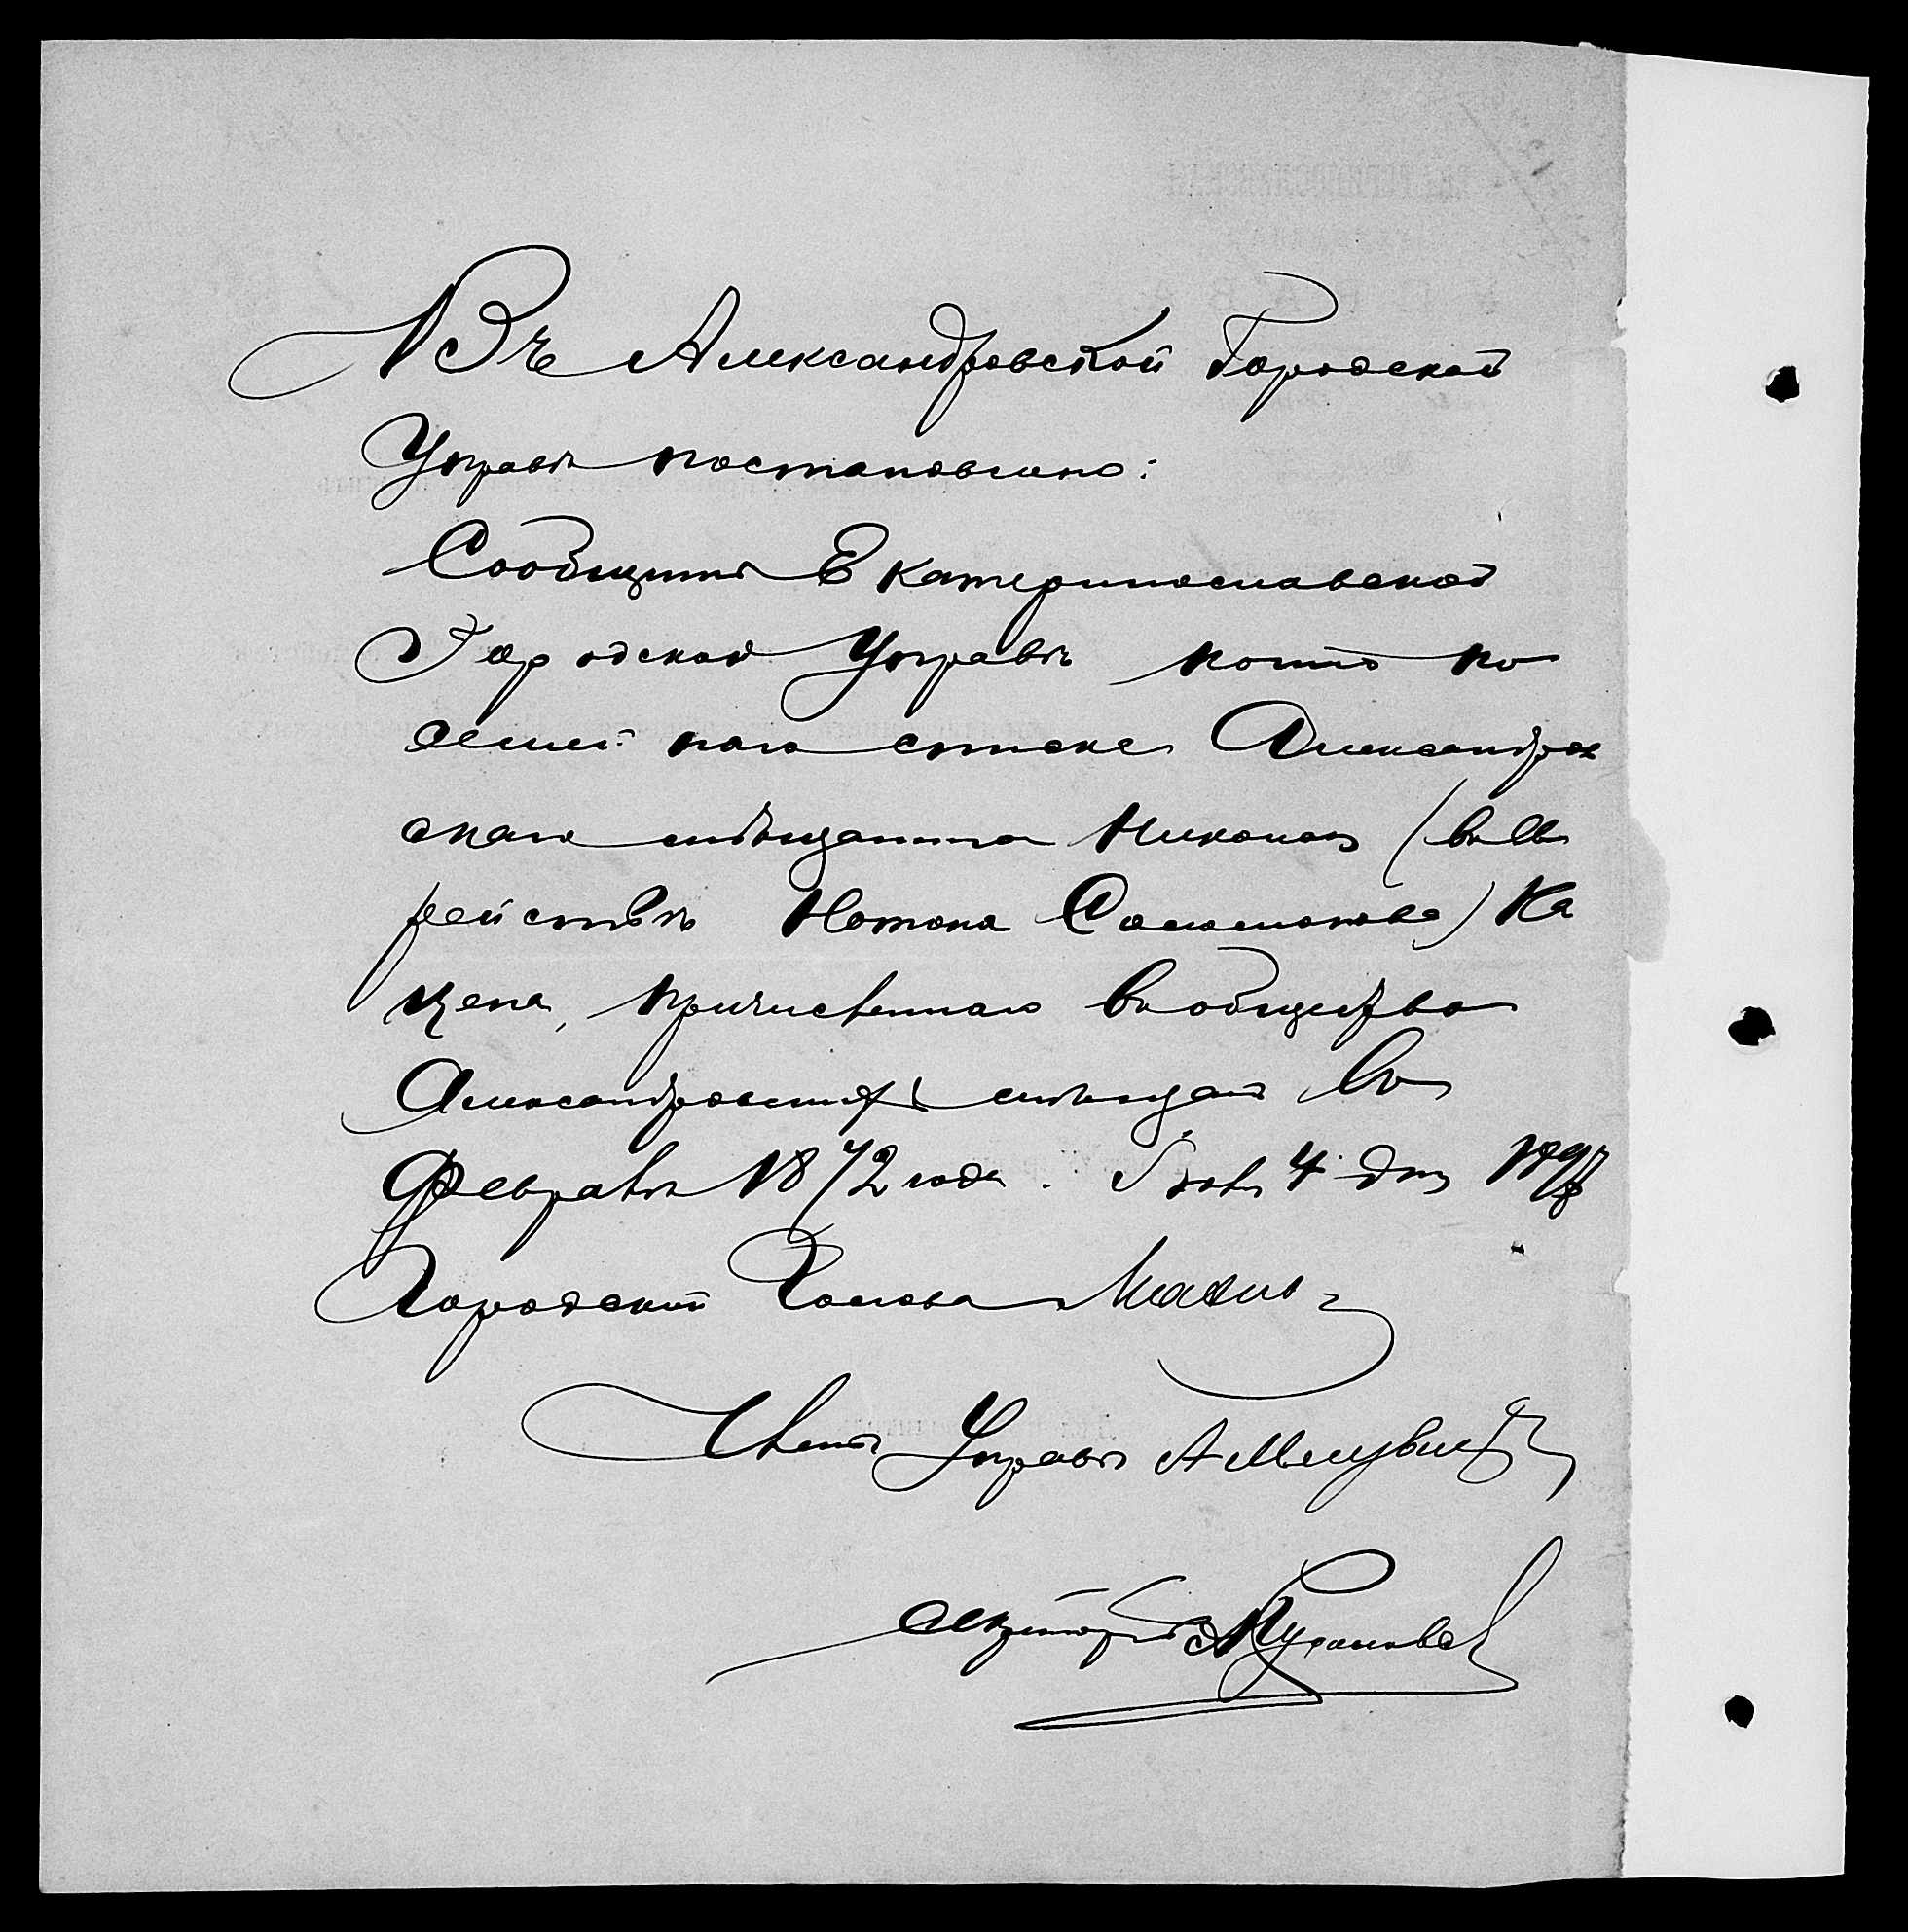 Въ Александровской Городской
Управѣ постановлено:
Сообщить Екатеринославской
Городской Управѣ копію по
семейнаго списка Александров
скаго мѣщанина Николая (въ ев
рействѣ Нотона Соломонова) Ка
цена, причисленнаго въ общество
Александровскихъ мѣщанъ въ
Февралѣ 1872 года. 4 дня 1897
Городской Голова
Членъ Управы А
Секретарь